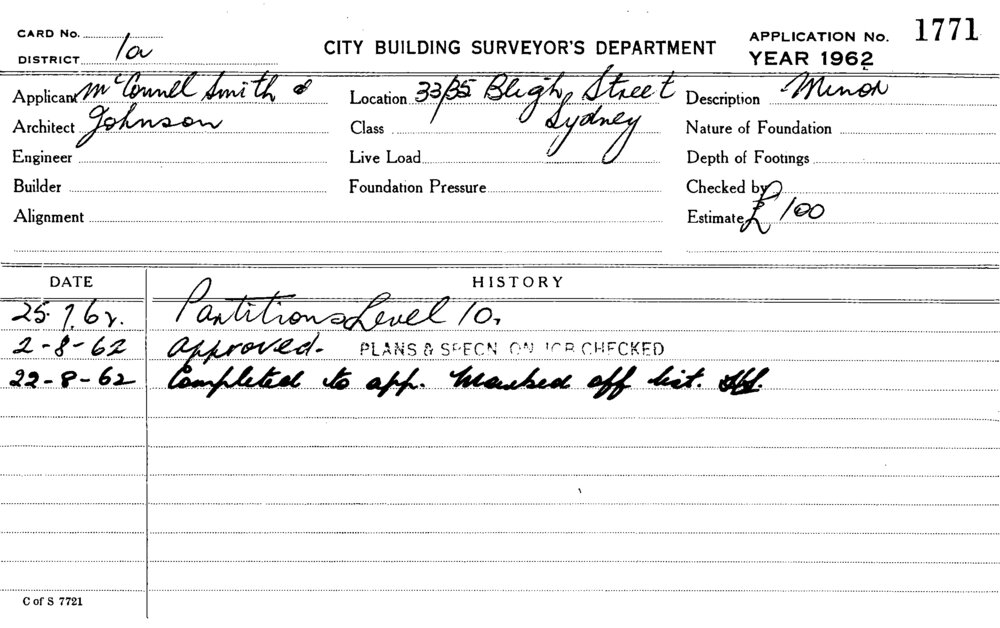 CARD No.
DISTRICT 1a
CITY BUILDING SURVEYOR'S DEPARTMENT
APPLICATION No. 1771
YEAR 1962
Applicant McConnel Smith &
Architect Johnson
Engineer
Builder
Alignment
Location 33/35 Bligh Street
Class Sydney
Live Load
Foundation Pressure
Description Minor
Nature of Foundation
Depth of Footings
Checked by
Estimate £100
DATE HISTORY
25.7.62. Partitions Level 10.
2-8-62 Approved. PLANS & SPECN ON JOB CHECKED
22-8-62 Completed to app. Marked off list.
C of S 7721